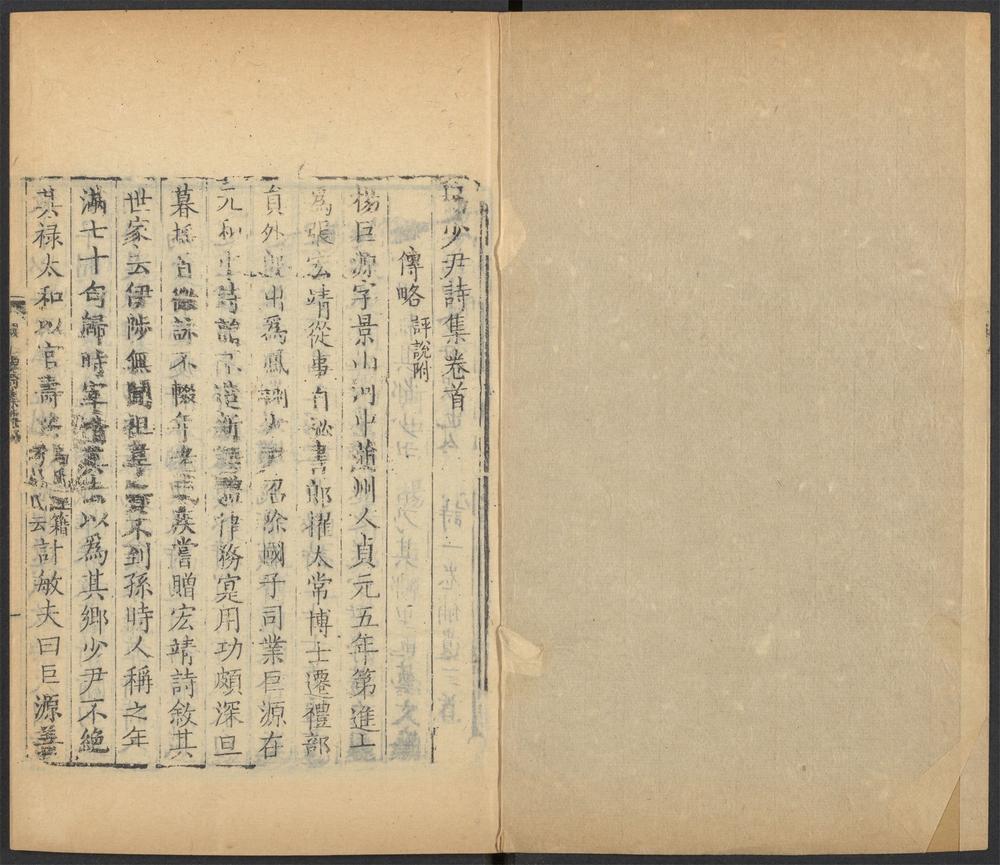 少尹詩集卷首
傳略 評說附
楊巨源字景山河中蒲州人貞元五年第進士
為張宏靖從事自祕書郎擢太常博士遷禮部
員外郎出為鳳翔少尹召除國子司業巨源在
元和中詩韻不造新語體律務實用功頗深旦
暮搖首微詠不輟年老成疾嘗贈宏靖詩敘其
世家云伊陟無聞祖韋賢不到孫時人稱之年
滿七十匄歸時宰以為其鄉少尹不絕
其祿太和以官壽 籍 云計敏夫曰巨源善